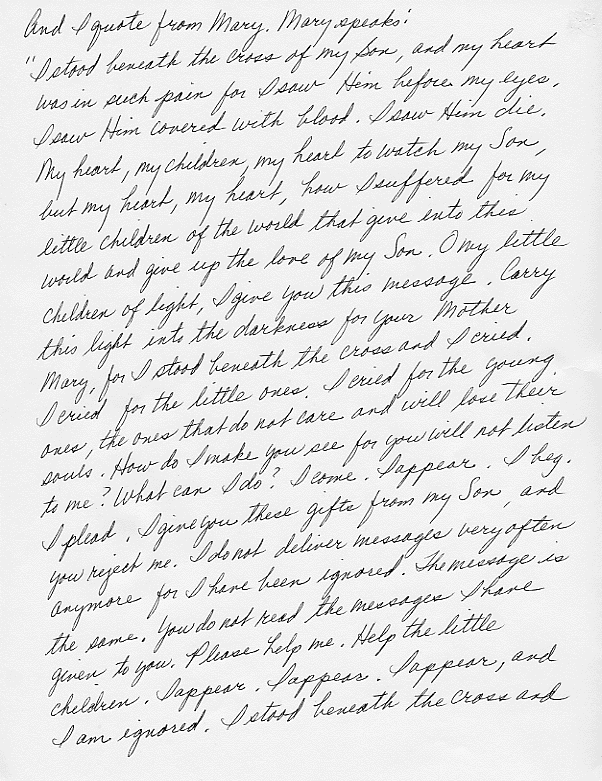 And I quote from Mary. Mary speaks:
"I stood beneath the cross of my Son, and my heart
was in such pain for I saw Him before my eyes.
I saw Him covered with blood. I saw Him die.
My heart, my children, my heart to watch my Son,
but my heart, my heart, how I suffered for my
little children of the world that give into this
world and give up the love of my Son. O my little
children of light, I give you this message. Carry
this light into the darkness for your Mother
Mary, for I stood beneath the cross and I cried.
I cried for the little ones. I cried for the young
ones, the ones that do not care and will lose their
souls. How do I make you see for you will not listen
to me? What can I do? I come. I appear. I beg.
I plead. I give you these gifts from my Son, and
you reject me. I do not deliver messages very often
anymore for I have been ignored. The message is
the same. You do not read the messages I have
given to you. Please help me. Help the little
children. I appear. I appear. I appear, and
I am ignored. I stood beneath the cross and